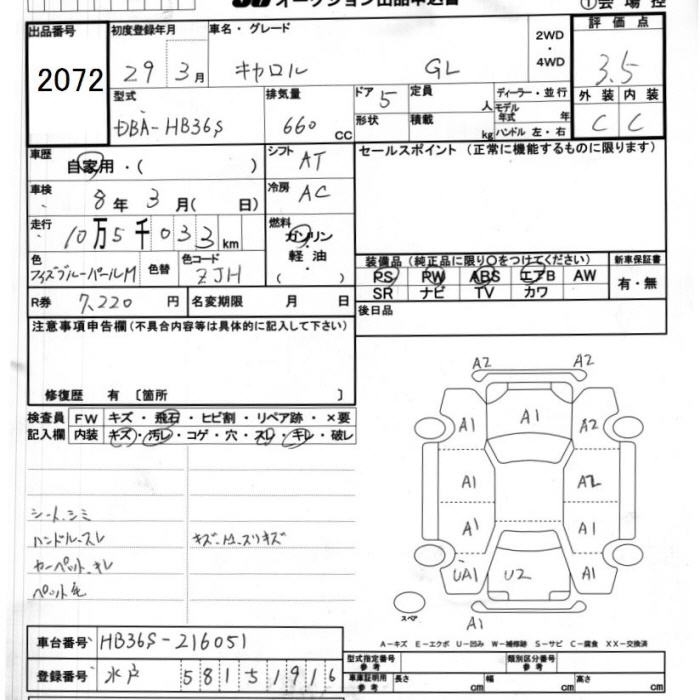 オークション出品申込書
①会場控
出品番号 2072
初度登録年月 29年3月
車名・グレード キャロル GL
2WD・4WD
評価点 3.5
型式 DBA-HB36S
排気量 660 CC
ドア 5
形状
定員 人
積載 kg
ディーラー・並行
モデル年式 年
ハンドル 左・右
外装 C
内装 C
車歴 自家用・( )
シフト AT
セールスポイント (正常に機能するものに限ります)
車検 8年3月( 日)
冷房 AC
走行 10万5千033km
燃料 ガソリン・軽油・( )
色 フィズブルーパールM
色替
色コード ZJH
装備品 (純正品に限り○をつけてください)
新車保証書 有・無
PS PW ABS エアB AW
SR ナビ TV カワ
R券 7,220円
名変期限 月 日
後日品
注意事項申告欄(不具合内容等は具体的に記入して下さい)
修復歴 有 〔箇所 〕
検査員記入欄
FW キズ・飛石・ヒビ割・リペア跡・×要
内装 キズ・汚レ・コゲ・穴・スレ・キレ・破レ
シート、シミ
ハンドル、スレ
カーペット、キレ
ペット毛
A2 A2
A1 A1 A2
A1 A2
A1 A1
UA1 U2 A1
A1
スペア
A-キズ E-エクボ U-凹み W-補修跡 S-サビ C-腐食 XX-交換済
車台番号 HB36S-216051
登録番号 水戸 581 5 1916
型式指定番号 参考
類別区分番号 参考
車庫証明用 参考 長さ cm 幅 cm 高さ cm